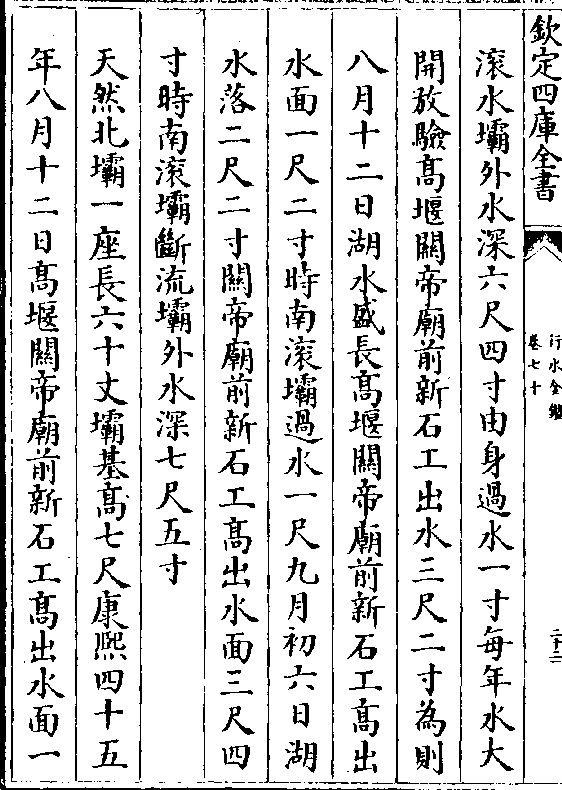 欽定四庫全書
行水金鑑
卷七十
二十二
滚水壩外水深六尺四寸由身過水一寸每年水大
開放驗髙堰關帝廟前新石工出水三尺二寸為則
八月十二日湖水盛長髙堰關帝廟前新石工髙出
水面一尺二寸時南滚壩過水一尺九月初六日湖
水落二尺二寸關帝廟前新石工髙出水面三尺四
寸時南滚壩斷流壩外水深七尺五寸
天然北壩一座長六十丈壩基髙七尺康熙四十五
年八月十二日髙堰關帝廟前新石工髙出水面一